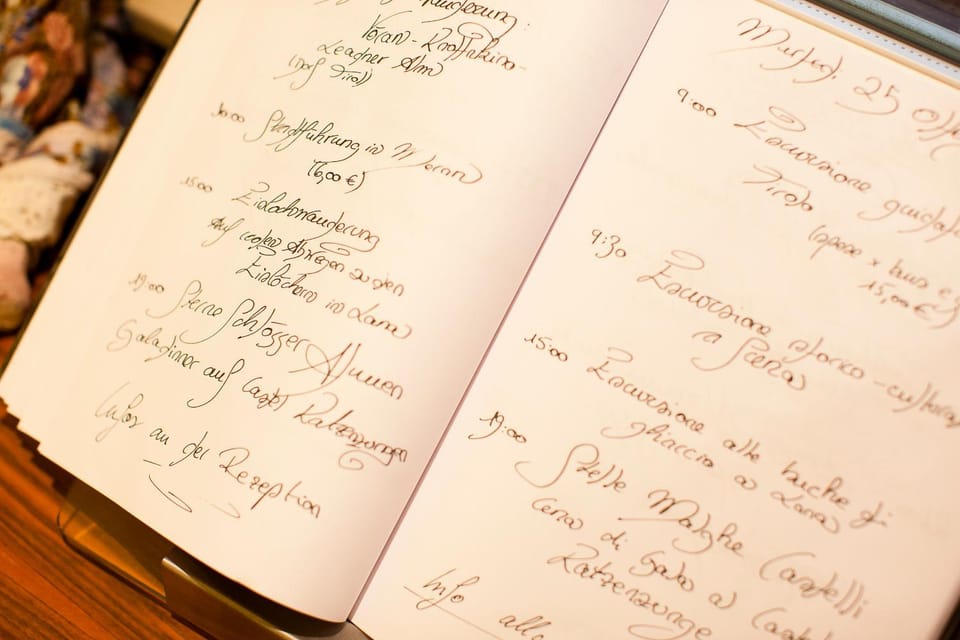 Vöran - Knottnkino -
Leadner Alm
10:00 Stadtführung in Meran
(6,00 €)
15:00 Eislochwanderung
Auf
Eislöchern in Lana
19:00 Sterne Schlösser Almen
Galadinner auf Castel Katzenzungen
Infos an der Rezeption
25
9:00 Escursione guidata
Tirolo
(spese x bus e g
15,00 €)
9:30 Escursione storico-cultura
a Scena
15:00 Escursione alle buche di
ghiaccio a Lana
19:00 Stelle Malghe Castelli
Cena di Gala a Cast
Katzenzunge
Info alla